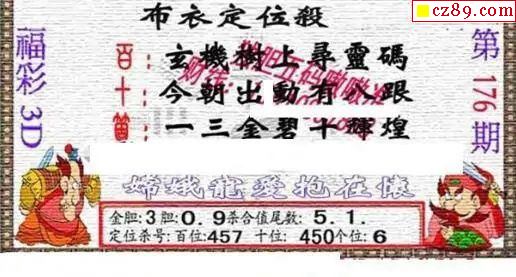 cz89.com
布衣定位殺
福彩3D
第176期
百：玄機樹上尋靈碼
十：今朝出動有八跟
個：一三金碧十輝煌
嫦娥寵愛抱在懷
金胆:3胆:0.9杀合值尾数: 5.1.
定位杀号:百位:457 十位: 450个位:6